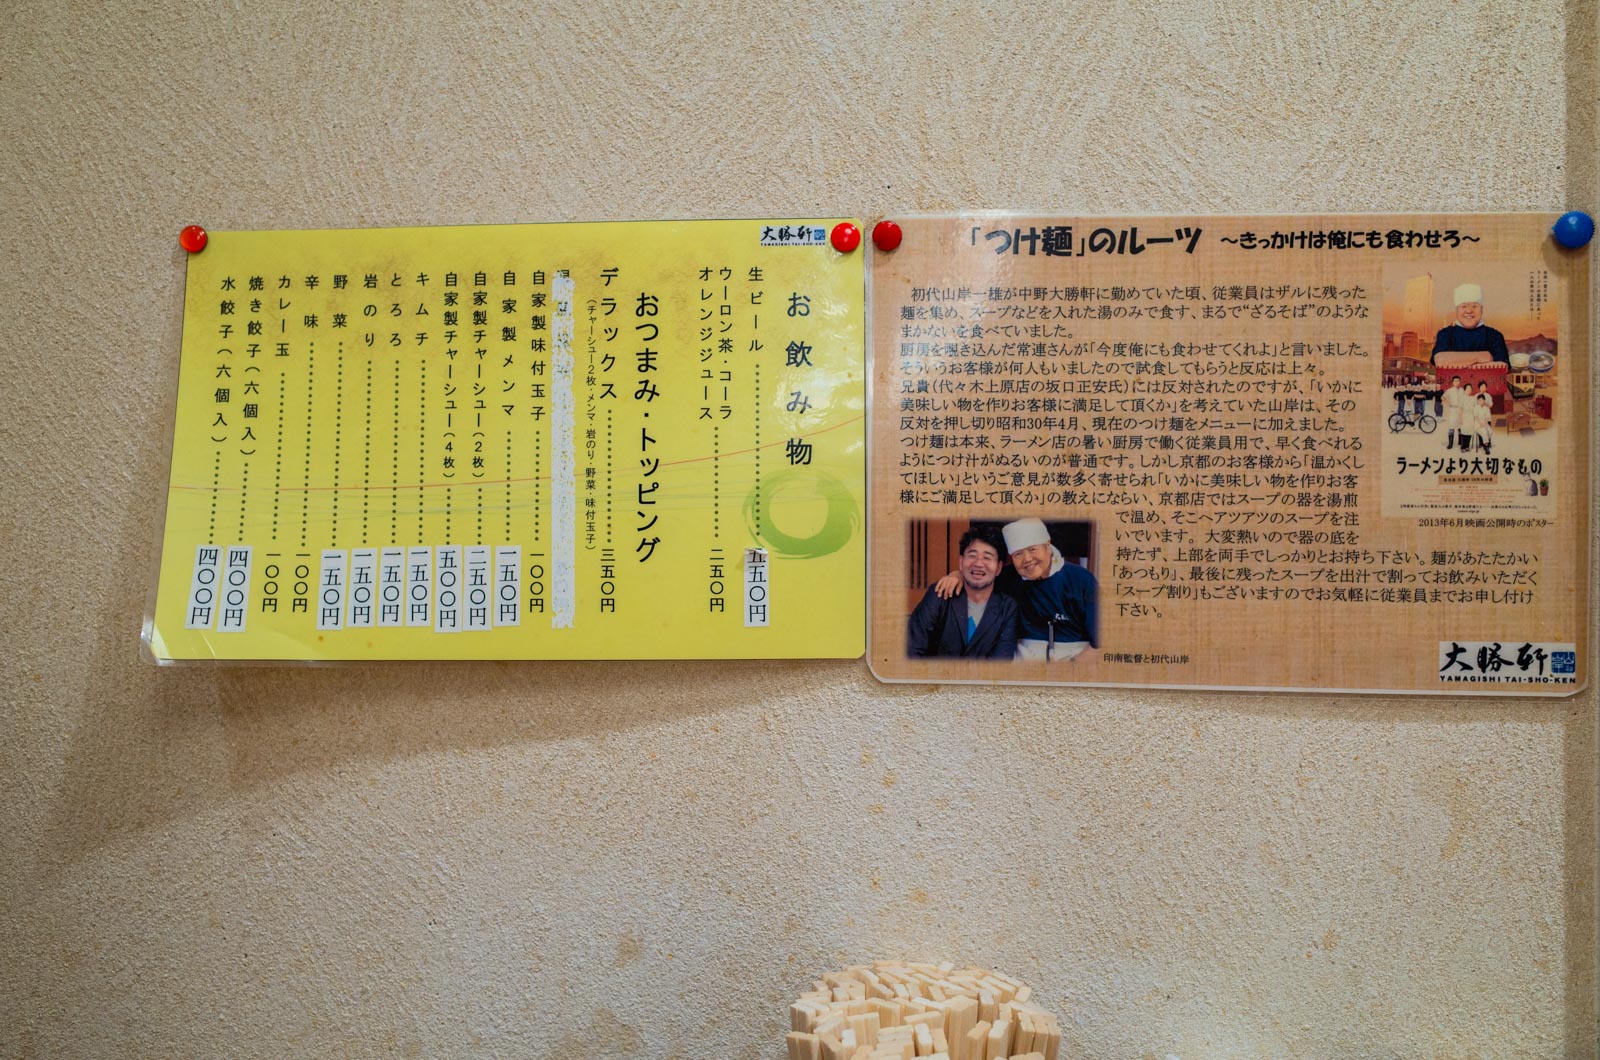 大勝軒
YAMAGISHI TAI-SHO-KEN
お飲み物
生ビール 五五〇円
ウーロン茶・コーラ
オレンジジュース 二五〇円
おつまみ・トッピング
デラックス 三五〇円
(チャーシュー2枚・メンマ・岩のり・野菜・味付玉子)
自家製味付玉子 一〇〇円
自家製メンマ 一五〇円
自家製チャーシュー(2枚) 二五〇円
自家製チャーシュー(4枚) 五〇〇円
キムチ 一五〇円
とろろ 一五〇円
岩のり 一五〇円
野菜 一五〇円
辛味 一〇〇円
カレー玉 一〇〇円
焼き餃子(六個入) 四〇〇円
水餃子(六個入) 四〇〇円
「つけ麺」のルーツ ～きっかけは俺にも食わせろ～
初代山岸一雄が中野大勝軒に勤めていた頃、従業員はザルに残った
麺を集め、スープなどを入れた湯のみで食す、まるで“ざるそば”のような
まかないを食べていました。
厨房を覗き込んだ常連さんが「今度俺にも食わせてくれよ」と言いました。
そういうお客様が何人もいましたので試食してもらうと反応は上々。
兄貴(代々木上原店の坂口正安氏)には反対されたのですが、「いかに
美味しい物を作りお客様に満足して頂くか」を考えていた山岸は、その
反対を押し切り昭和30年4月、現在のつけ麺をメニューに加えました。
つけ麺は本来、ラーメン店の暑い厨房で働く従業員用で、早く食べれる
ようにつけ汁がぬるいのが普通です。しかし京都のお客様から「温かくし
てほしい」というご意見が数多く寄せられ「いかに美味しい物を作りお客
様にご満足して頂くか」の教えにならい、京都店ではスープの器を湯煎
で温め、そこへアツアツのスープを注
いでいます。大変熱いので器の底を
持たず、上部を両手でしっかりとお持ち下さい。麺があたたかい
「あつもり」、最後に残ったスープを出汁で割ってお飲みいただく
「スープ割り」もございますのでお気軽に従業員までお申し付け
下さい。
ラーメンより大切なもの
2013年6月映画公開時のポスター
印南監督と初代山岸
大勝軒
YAMAGISHI TAI-SHO-KEN